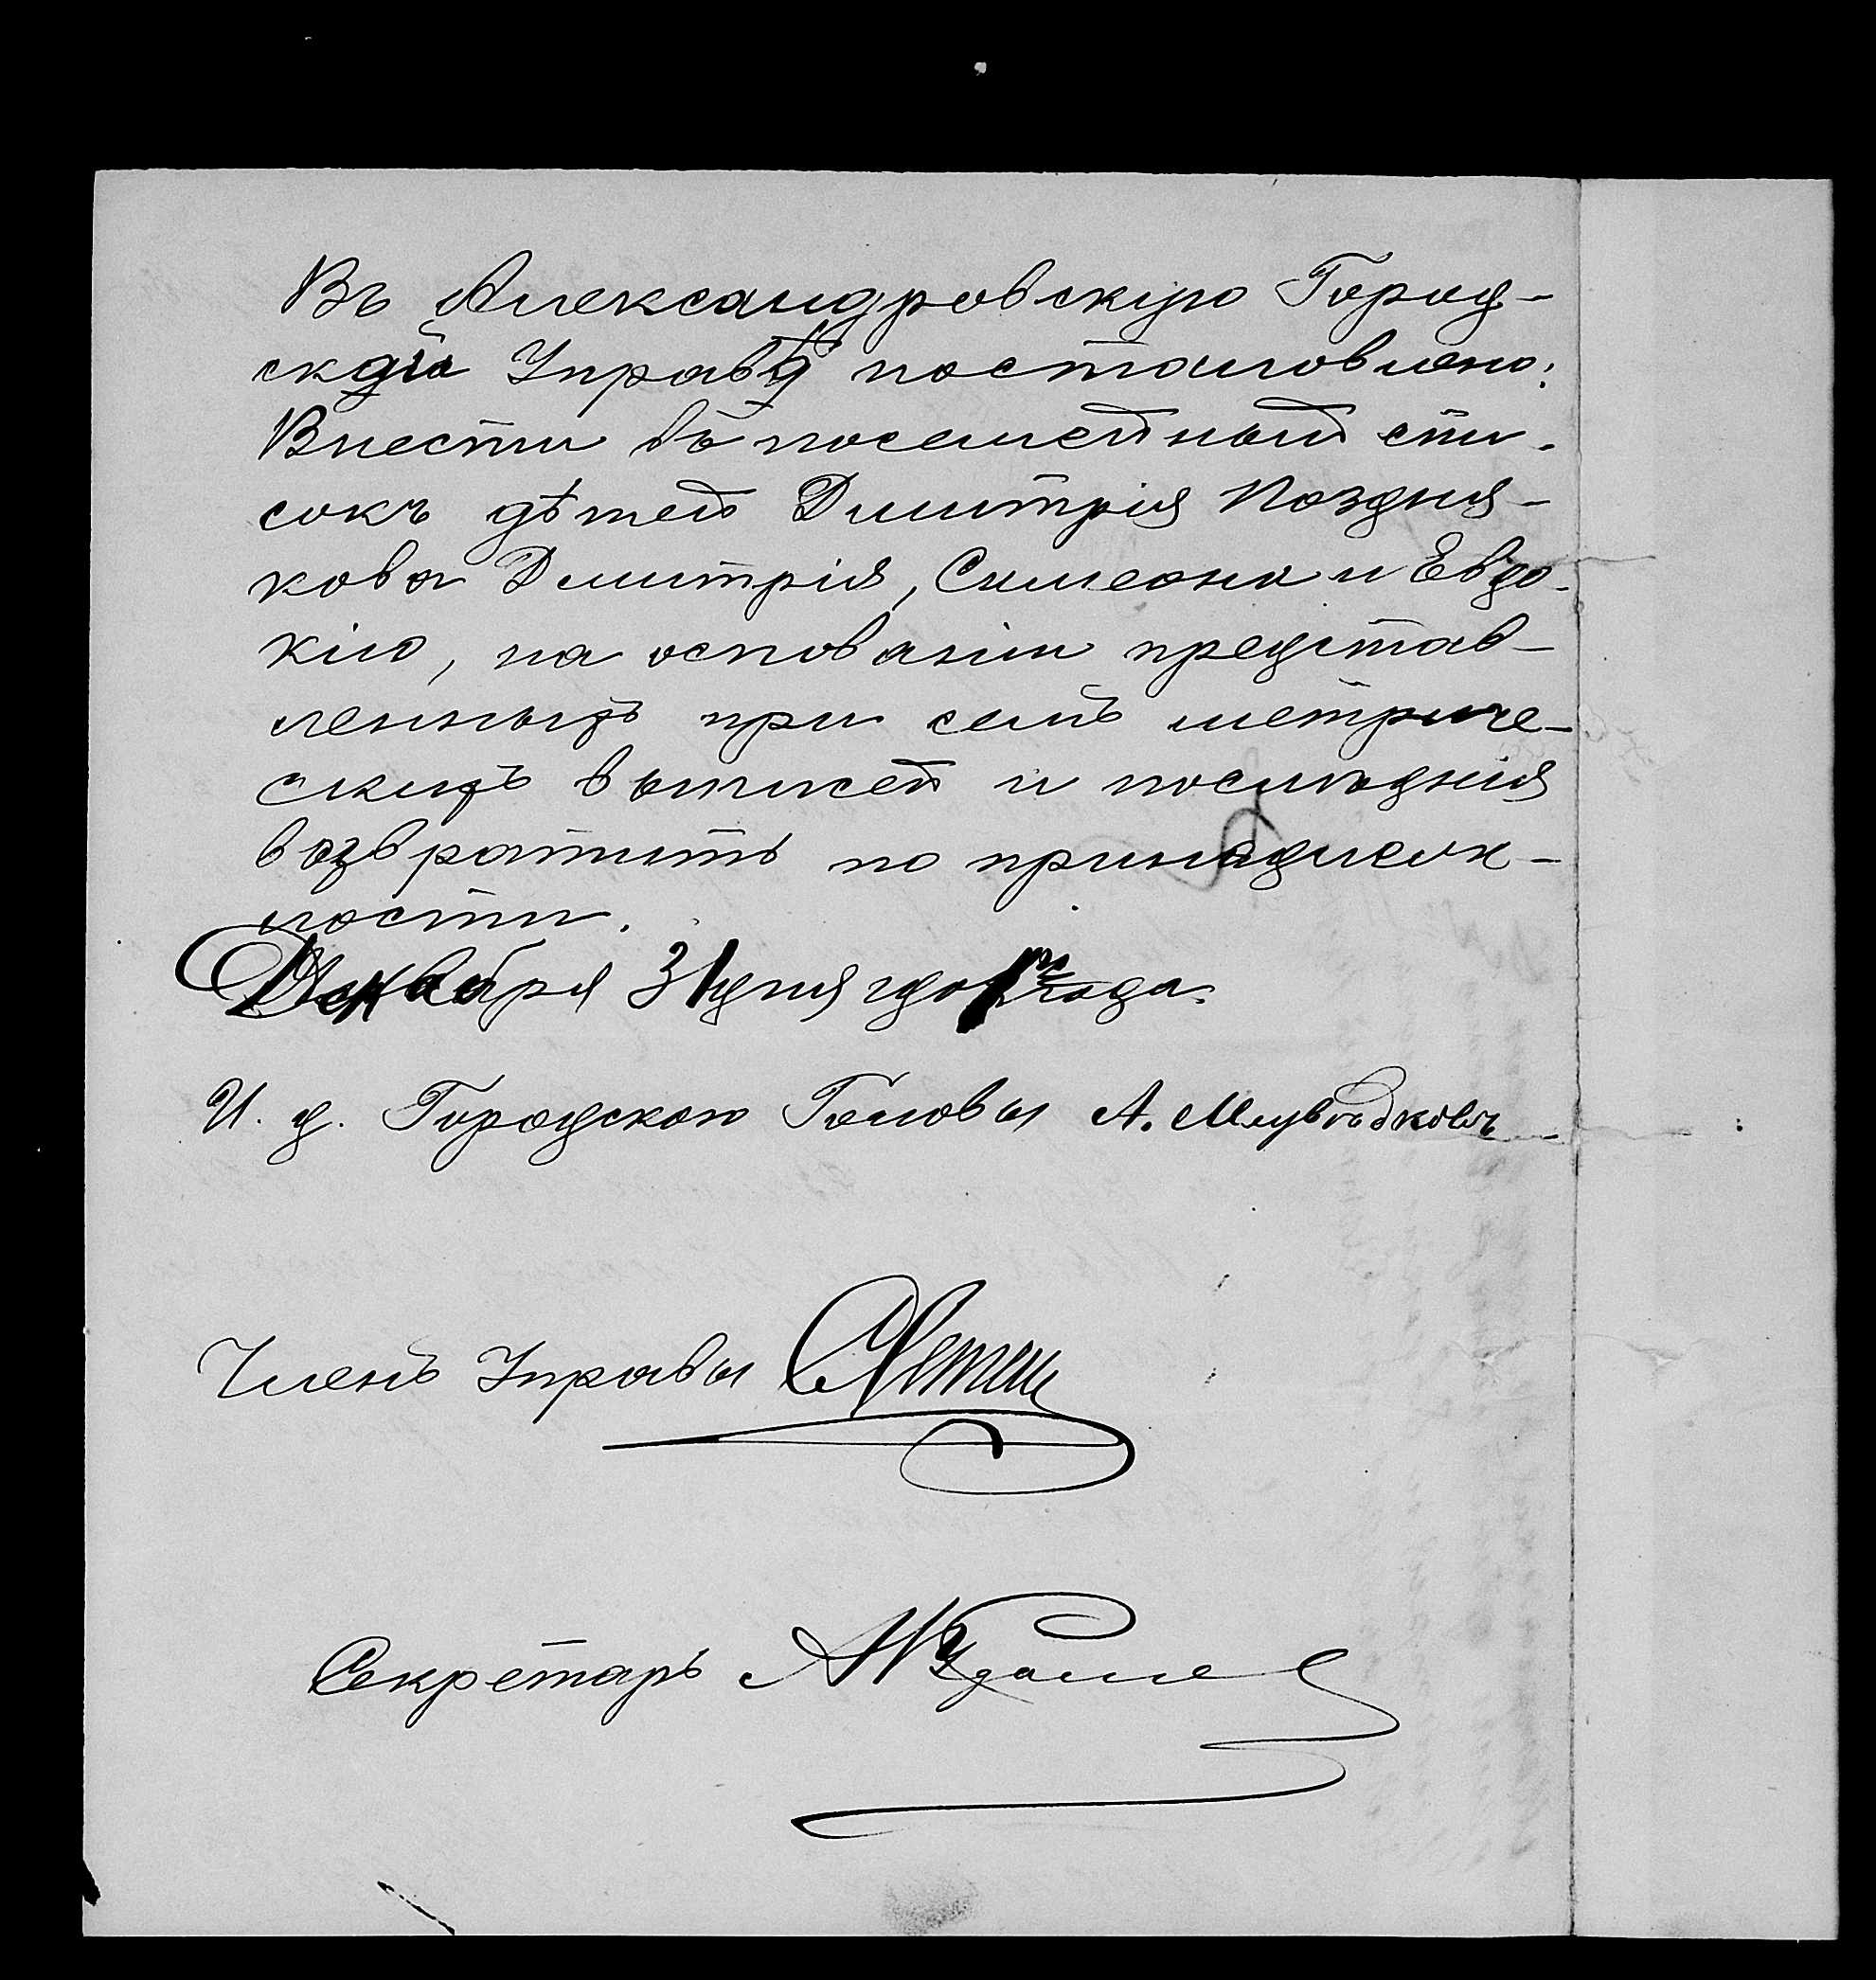 Въ Александровскую Город-
скую Управу постановлено:
Внести въ посемейный спи-
сокъ дѣтей Димитрія Поздня-
кова Димитрія, Симеона и Евдо-
кію, на основаніи представ-
ленныхъ при семъ метриче-
скихъ выписей и послѣднія
возвратить по принадлеж-
ности.
Декабря 31 дня года.
И. д. Городского Головы А.
Членъ Управы
Секретарь